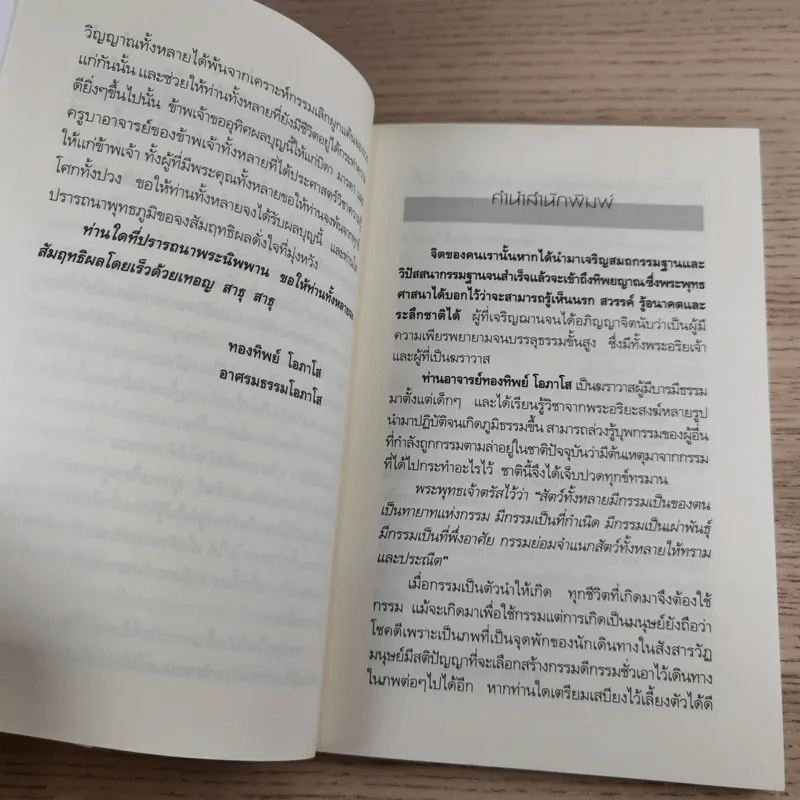 วิญญาณทั้งหลายได้พ้นจากเคราะห์กรรมเลิกผูกแค้น
แก่กันนั้น และช่วยให้ท่านทั้งหลายที่ยังมีชีวิตอยู่ได้กระทำความ
ดียิ่งๆขึ้นไปนั้น ข้าพเจ้าขออุทิศผลบุญนี้ให้แก่บิดา มารดา
ครูบาอาจารย์ของข้าพเจ้าทั้งหลายที่ได้ประศาสตร์วิชาความรู้
ให้แก่ข้าพเจ้า ทั้งผู้ที่มีพระคุณทั้งหลายขอให้ท่านจงพ้นจากทุกข์
โศกทั้งปวง ขอให้ท่านทั้งหลายจงได้รับผลบุญนี้ และท่านใด
ปรารถนาพุทธภูมิขอจงสัมฤทธิผลดั่งใจที่มุ่งหวัง
ท่านใดที่ปรารถนาพระนิพพาน ขอให้ท่านทั้งหลายจง
สัมฤทธิผลโดยเร็วด้วยเทอญ สาธุ สาธุ
ทองทิพย์ โอภาโส
อาศรมธรรมโอภาโส
คำนำสำนักพิมพ์
จิตของคนเรานั้นหากได้นำมาเจริญสมถกรรมฐานและ
วิปัสสนากรรมฐานจนสำเร็จแล้วจะเข้าถึงทิพยญาณ ซึ่งพระพุทธ
ศาสนาได้บอกไว้ว่าจะสามารถรู้เห็นนรก สวรรค์ รู้อนาคตและ
ระลึกชาติได้ ผู้ที่เจริญฌานจนได้อภิญญาจิตนับว่าเป็นผู้มี
ความเพียรพยายามจนบรรลุธรรมขั้นสูง ซึ่งมีทั้งพระอริยเจ้า
และผู้ที่เป็นฆราวาส
ท่านอาจารย์ทองทิพย์ โอภาโส เป็นฆราวาสผู้มีบารมีธรรม
มาตั้งแต่เด็กๆ และได้เรียนรู้วิชาจากพระอริยะสงฆ์หลายรูป
นำมาปฏิบัติจนเกิดภูมิธรรมขึ้น สามารถล่วงรู้บุพกรรมของผู้อื่น
ที่กำลังถูกกรรมตามล่าอยู่ในชาติปัจจุบันว่ามีต้นเหตุมาจากกรรม
ที่ได้ไปกระทำอะไรไว้ ชาตินี้จึงได้เจ็บปวดทุกข์ทรมาน
พระพุทธเจ้าตรัสไว้ว่า "สัตว์ทั้งหลายมีกรรมเป็นของตน
เป็นทายาทแห่งกรรม มีกรรมเป็นที่กำเนิด มีกรรมเป็นเผ่าพันธุ์
มีกรรมเป็นที่พึ่งอาศัย กรรมย่อมจำแนกสัตว์ทั้งหลายให้ทราม
และประณีต"
เมื่อกรรมเป็นตัวนำให้เกิด ทุกชีวิตที่เกิดมาจึงต้องใช้
กรรม แม้จะเกิดมาเพื่อใช้กรรมแต่การเกิดเป็นมนุษย์ยังถือว่า
โชคดีเพราะเป็นภพที่เป็นจุดพักของนักเดินทางในสังสารวัฏ
มนุษย์มีสติปัญญาที่จะเลือกสร้างกรรมดีกรรมชั่วเอาไว้เดินทาง
ในภพต่อๆไปได้อีก หากท่านใดเตรียมเสบียงไว้เลี้ยงตัวได้ดี